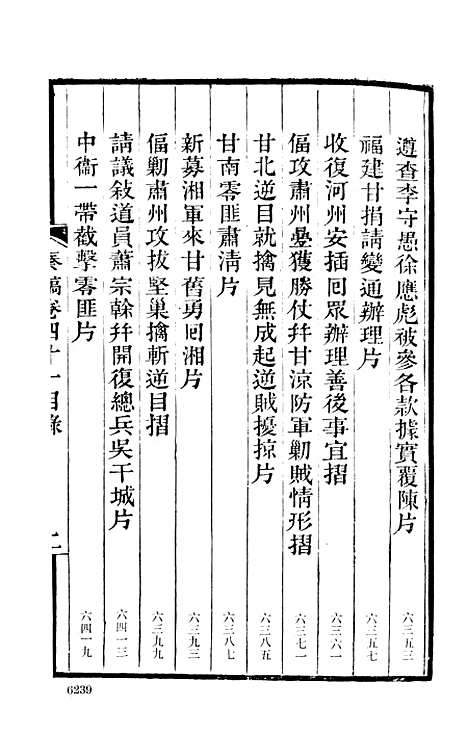 遵查李守愚徐應彪被參各款據實覆陳片 六三五三
福建甘捐請變通辦理片 六三五七
收復河州安插囘眾辦理善後事宜摺 六三六一
偪攻肅州疊獲勝仗幷甘涼防軍勦賊情形摺 六三七一
甘北逆目就擒見無成起逆賊擾掠片 六三八五
甘南零匪肅淸片 六三八七
新募湘軍來甘舊勇囘湘片 六三九三
偪勦肅州攻拔堅巢擒斬逆目摺 六三九九
請議敍道員蕭宗榦幷開復總兵吳干城片 六四一三
中衞一帶截擊零匪片 六四一九
奏稿卷四十一目錄 二
6239